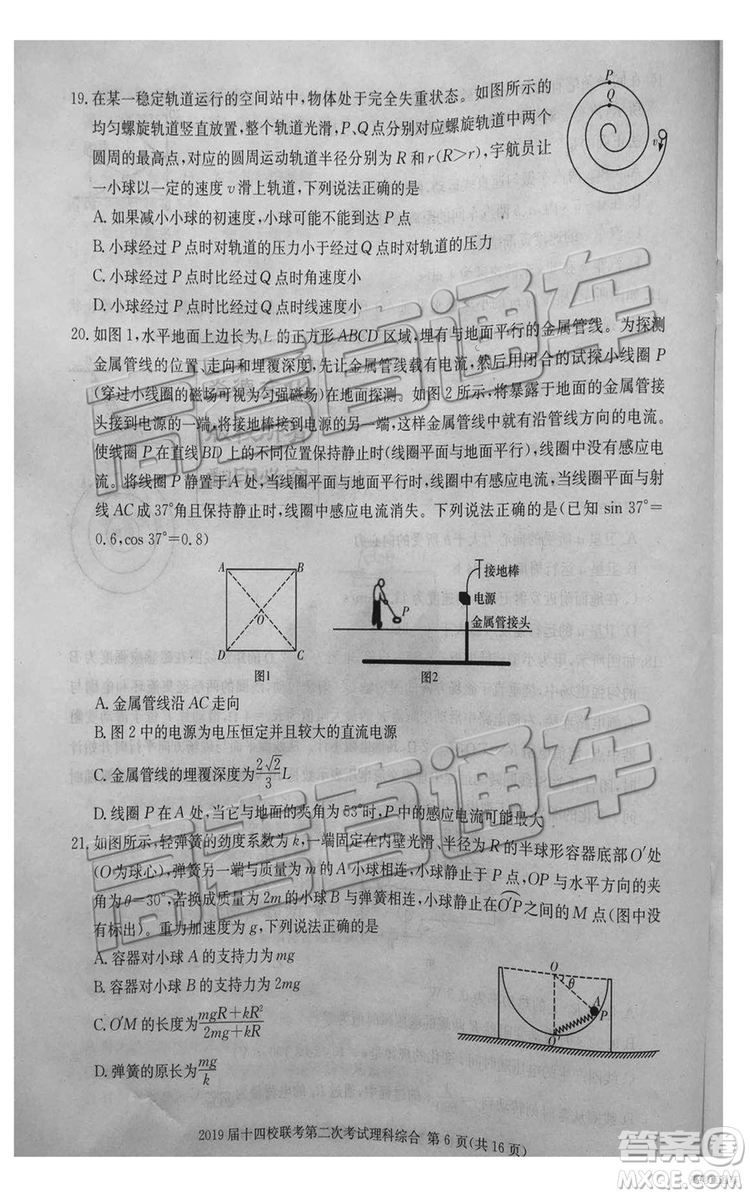 19. 在某一稳定轨道运行的空间站中，物体处于完全失重状态。如图所示的
均匀螺旋轨道竖直放置，整个轨道光滑，P、Q点分别对应螺旋轨道中两个
圆周的最高点，对应的圆周运动轨道半径分别为R和r(R>r)，宇航员让
一小球以一定的速度v滑上轨道，下列说法正确的是
P
Q
v
A. 如果减小小球的初速度，小球可能不能到达P点
B. 小球经过P点时对轨道的压力小于经过Q点时对轨道的压力
C. 小球经过P点时比经过Q点时角速度小
D. 小球经过P点时比经过Q点时线速度小
20. 如图1，水平地面上边长为L的正方形ABCD区域，埋有与地面平行的金属管线。为探测
金属管线的位置、走向和埋覆深度，先让金属管线载有电流，然后用闭合的试探小线圈P
(穿过小线圈的磁场可视为匀强磁场)在地面探测。如图2所示，将暴露于地面的金属管接
头接到电源的一端，将接地棒接到电源的另一端，这样金属管线中就有沿管线方向的电流。
使线圈P在直线BD上的不同位置保持静止时(线圈平面与地面平行)，线圈中没有感应电
流。将线圈P静置于A处，当线圈平面与地面平行时，线圈中有感应电流，当线圈平面与射
线AC成37°角且保持静止时，线圈中感应电流消失。下列说法正确的是(已知 sin 37°=
0.6，cos 37°=0.8)
A
B
O
D
C
图1
P
接地棒
电源
金属管接头
图2
A. 金属管线沿AC走向
B. 图2中的电源为电压恒定并且较大的直流电源
C. 金属管线的埋覆深度为2√2/3 L
D. 线圈P在A处，当它与地面的夹角为53°时，P中的感应电流可能最大
21. 如图所示，轻弹簧的劲度系数为k，一端固定在内壁光滑、半径为R的半球形容器底部O′处
(O为球心)，弹簧另一端与质量为m的小球相连，小球静止于P点，OP与水平方向的夹
角为θ=30°，若换成质量为2m的小球与弹簧相连，小球静止在O′P之间的M点(图中没
有标出)。重力加速度为g，下列说法正确的是
A. 容器对小球A的支持力为mg
B. 容器对小球A的支持力为2mg
C. O′M的长度为(mgR+kR²)/(2mg+kR)
D. 弹簧的原长为mg/k
O
θ
A
P
O′
2019届十四校联考第二次考试理科综合 第6页(共16页)
高考直通车